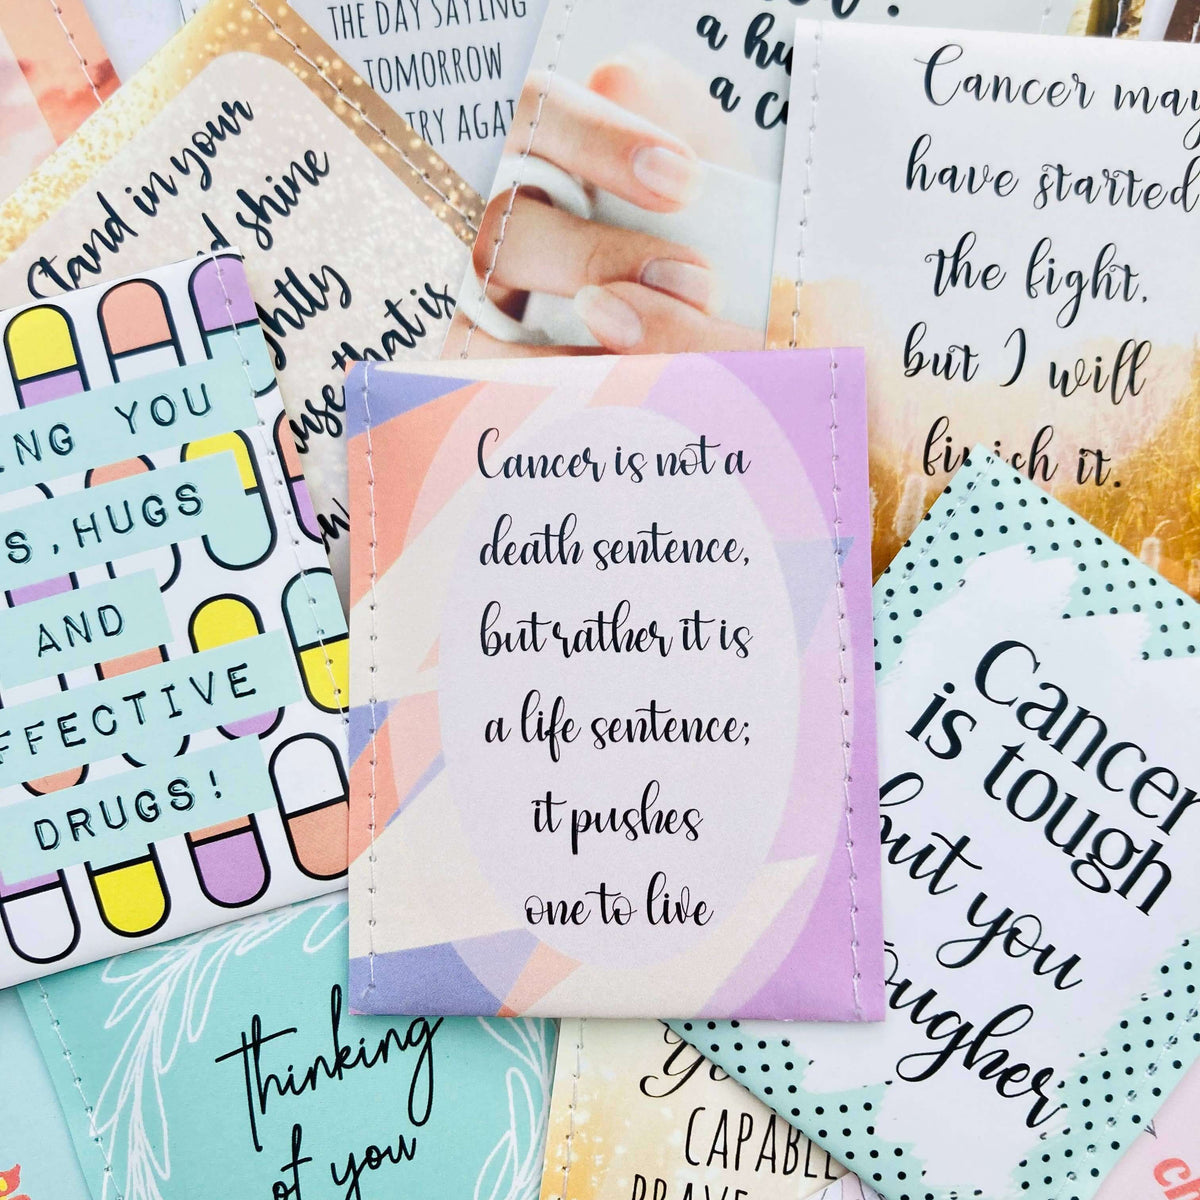 THE DAY SAYING
TOMORROW
TRY AGAI
a hu
a c
Cancer may
have started
the fight,
but I will
finish it.
Stand in your
d shine
ghtly
use that is
ow
NG YOU
S, HUGS
AND
FFECTIVE
DRUGS!
Cancer is not a
death sentence,
but rather it is
a life sentence;
it pushes
one to live
Cancer
is tough
but you
ougher
thinking
of you
Yo
CAPABL
BRAVE